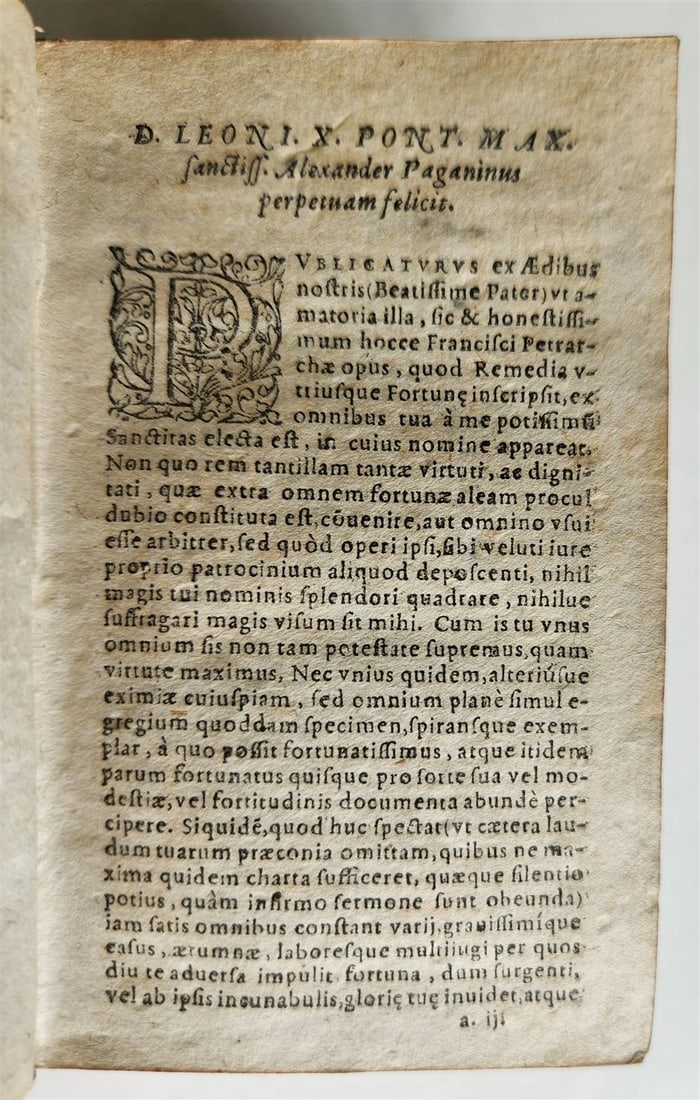 D. LEONI. X. PONT. MAX.
ſanctiſſ. Alexander Paganinus
perpetuam felicit.
PVBLICATVRVS ex Ædibus
noſtris(Beatiſſime Pater)vt a-
matoria illa, ſic & honeſtiſſi-
mum hocce Franciſci Petrar-
chæ opus, quod Remedia v-
triuſque Fortunę inſcripſit, ex
omnibus tua à me potiſſimũ
Sanctitas electa eſt, in cuius nomine appareat.
Non quo rem tantillam tantæ virtuti, ac digni-
tati, quæ extra omnem fortunæ aleam procul
dubio conſtituta eſt, cõuenire, aut omnino vſui
eſſe arbitrer, ſed quòd operi ipſi, ſibi veluti iure
proprio patrocinium aliquod depoſcenti, nihil
magis tui nominis ſplendori quadrare, nihilue
ſuffragari magis viſum ſit mihi. Cum is tu vnus
omnium ſis non tam poteſtate ſupremus, quam
virtute maximus, Nec vnius quidem, alteriúſue
eximiæ cuiuſpiam, ſed omnium planè ſimul e-
gregium quoddam ſpecimen, ſpiranſque exem-
plar, à quo poſſit fortunatiſſimus, atque itidem
parum fortunatus quiſque pro ſorte ſua vel mo-
deſtiæ, vel fortitudinis documenta abundè per-
cipere. Siquidẽ, quod huc ſpectat(vt cætera lau-
dum tuarum præconia omittam, quibus ne ma-
xima quidem charta ſufficeret, quæque ſilentio
potius, quàm infirmo ſermone ſunt obeunda)
iam ſatis omnibus conſtant varij, grauiſſimíque
caſus, ærumnæ, laboreſque multiiugi per quos
diu te aduerſa impulit fortuna, dum ſurgenti,
vel ab ipſis incunabulis, glorię tuę inuidet, atque
a. iij